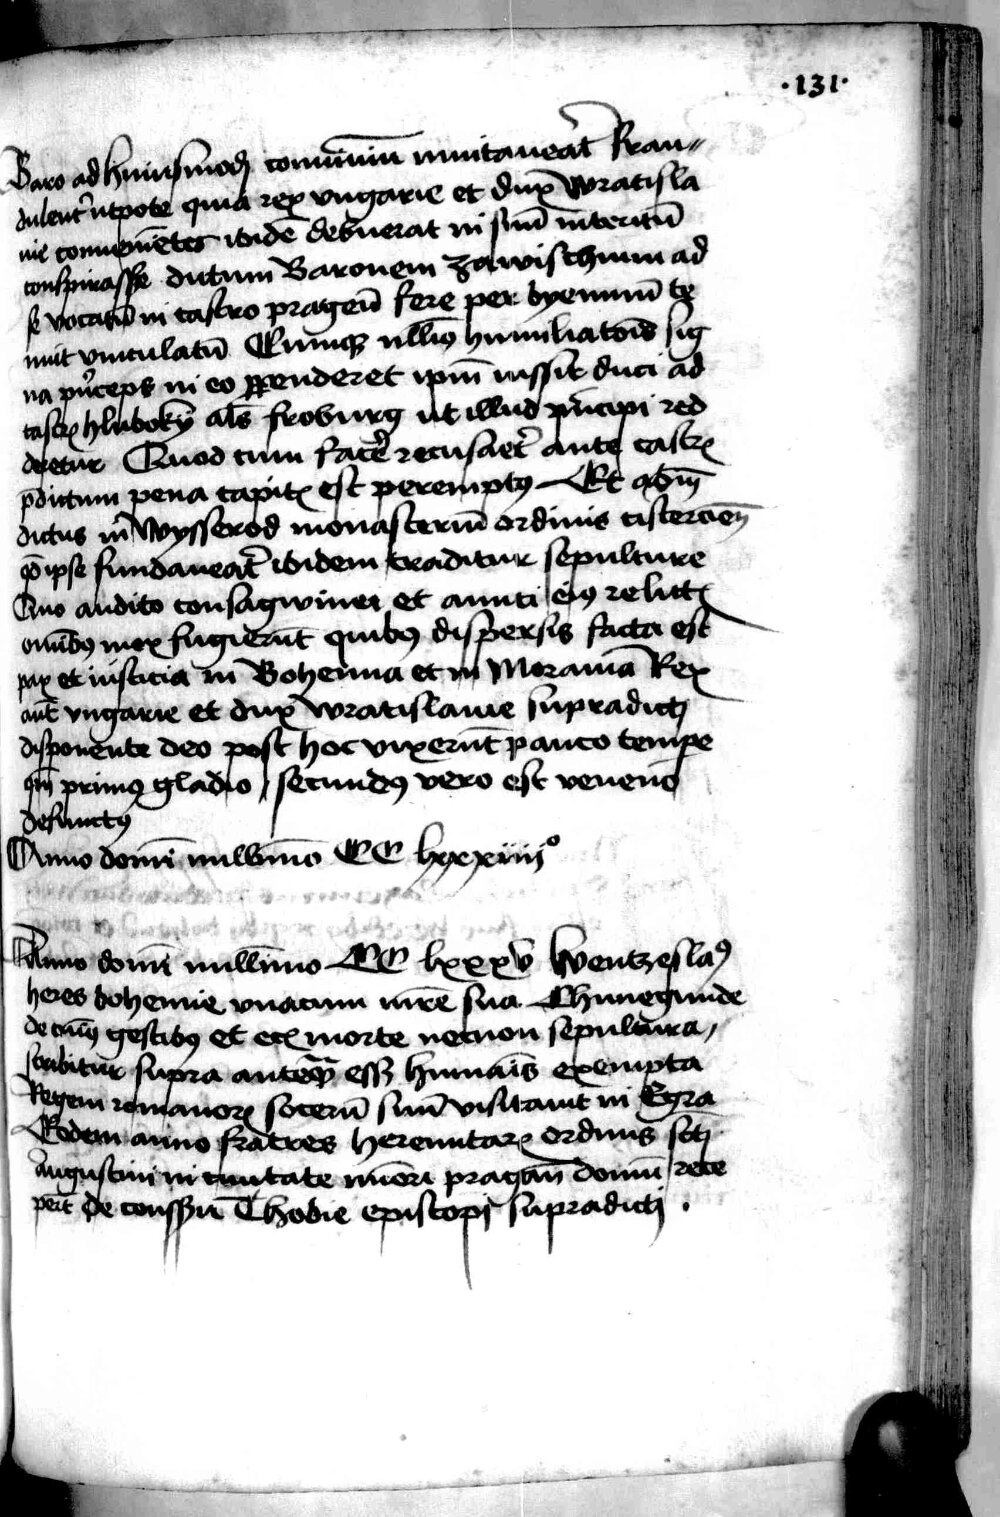 ·131·
Baro ad huiusmodi conuiuiu inuitauerat frau
dulent' utpote quia rex vngarie et dux Wratisla
uie conuenietes ibide debuerat in suu interitu
conspirasse dictum Baronem Zawischium ad
se vocatu in castro pragen fere per byennium te
nuit vinculatu Cumque nullius humiliatois sig
na pnceps in eo ppenderet ipm iussit duci ad
castr hluboky als froburg ut illud pncipi red
deretur Quod cum facere recusaret ante castr
pdictum pena capitis est peremptus Et
ductus in Wysserod monasteriu ordinis cistercien
qd ipse fundauerat ibidem traditur sepulture
Quo audito consagwinei et amici eius relictis
omibus mox fugierut quibus dispersis facta est
pax et iusticia in Bohemia et in Morauia Rex
aut vngarie et dux Wratislauie supradicti
disponente deo post hoc vixerut pauco tempe
qm primus gladio / secundus vero est veneno
defunctus
Anno domi millesimo CC lxxxiiii°
Anno domi millimo CC lxxxv Wentzeslaus
heres bohemie vnacum mre sua Chunegunde
de cuius gestibus et eciam morte necnon sepultura /
scribitur supra anteqm esset humanis exempta
Regem romanorum soceru suu visitauit in Egra
Eodem anno fratres heremitarum ordinis scti
Augustini in ciuitate minori pragan domu rece
pert de consensu Thobie episcopi supradicti .